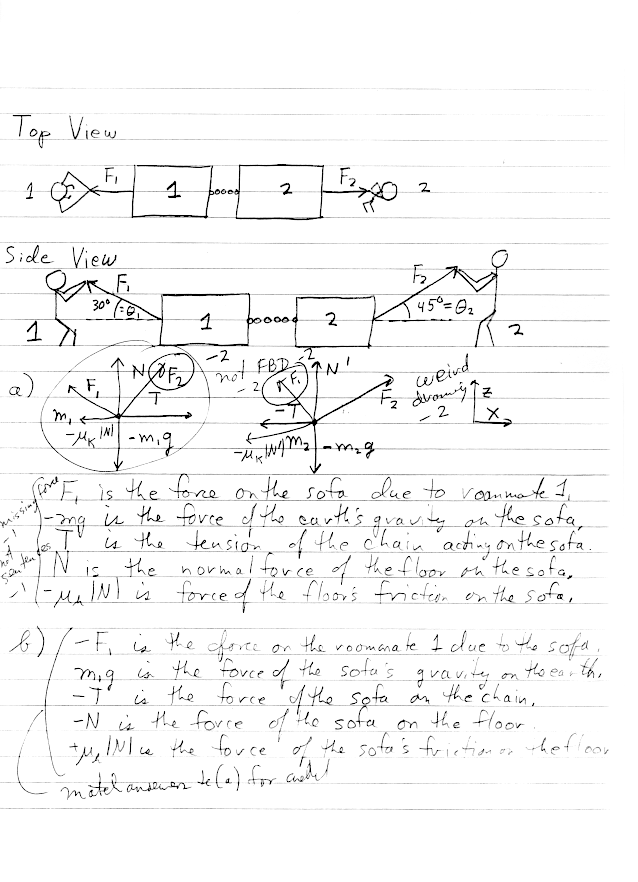 Top View
1 F₁ 1 2 F₂ 2
Side View
F₁ F₂
30° =θ₁ 1 2 45°=θ₂
1 2
a) F₁ N F₂ -2 not FBD -2 F₁ N' F₂ weird drawing -2 z
m₁ T -2 -T x
-μₖ|N| -m₁g -μₖ|N'| m₂ -m₂g
missing force -1
not sentences -1
F₁ is the force on the sofa due to roommate 1.
-mg is the force of the earth's gravity on the sofa.
T is the tension of the chain acting on the sofa.
N is the normal force of the floor on the sofa.
-μₖ|N| is force of the floor's friction on the sofa.
b) -F₁ is the force on the roommate 1 due to the sofa.
m₁g is the force of the sofa's gravity on the earth.
-T is the force of the sofa on the chain.
-N is the force of the sofa on the floor.
+μₖ|N| is the force of the sofa's friction on the floor
match answers to (a) for credit